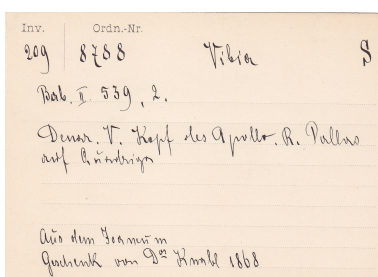 Inv. Ordn.-Nr.
209 8788 Vibia S
Bab. II. 539, 2.
Denar. V. Kopf des Apollo. R. Pallas
auf Quadriga
Aus dem Joanneum
Geschenk von Dr. Knabl 1868